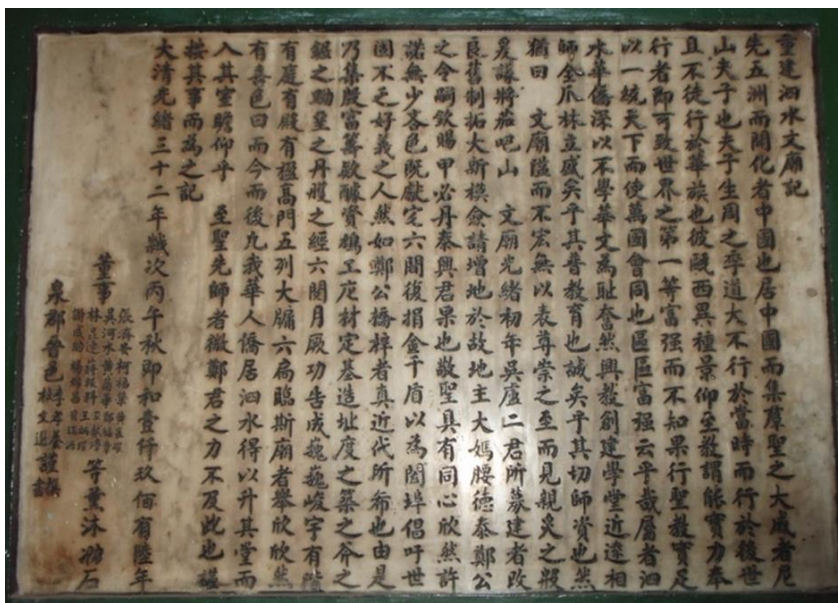 重建泗水文廟記
先五洲而開化者中國也居中國而集羣聖之大成者尼
山夫子也夫子生周之季道大不行於當時而行於後世
且不徒行於華族也彼既西異種景仰至教謂能實力奉
行者即可致世界之第一等富强而不知果行聖教實足
以一統天下而使萬國會同也區區富强云乎哉屬者泗
水華僑深以不學華文為耻奮然興教創建學堂近遠相
師全爪林立盛矣乎其普教育也誠矣乎其切師資也然
猶曰　文廟隘而不宏無以表尊崇之至而見親炙之殷
爰議將茄吧山　文廟光緒初年吳盧二君所募建者改
良舊制拓大新模僉請增地於故地主大媽腰德泰鄭公
之令嗣欽賜甲必丹泰興君果也敬聖具有同心欣然許
諾無少吝色既獻宅六間後捐金千盾以為闔埠倡吁世
固不乏好義之人然如鄭公橋梓者真近代所希也由是
乃集殷富籌款醵資鳩工庀材定基造址度之築之斧之
鋸之勵堊之丹雘之經六閱月厥功告成巍巍峻宇有階
有庭有殿有楹高門五列大牖六扁臨斯廟者舉欣欣然
有喜色曰而今而後凡我華人僑居泗水得以升其堂而
入其室瞻仰乎　至聖先師者微鄭君之力不及此也謹
按其事而為之記
大清光緒三十二年歲次丙午秋即和壹仟玖佰有陸年
董事　等薰沐勒石
泉郡晉邑　謹